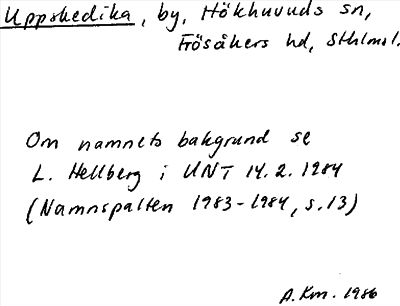 Uppskedika, by, Hökhuvuds sn,
Frösåkers hd, Sthlmsl.
Om namnets bakgrund se
L. Hellberg i UNT 14.2.1984
(Namnspalten 1983-1984, s.13)
A.Km. 1986